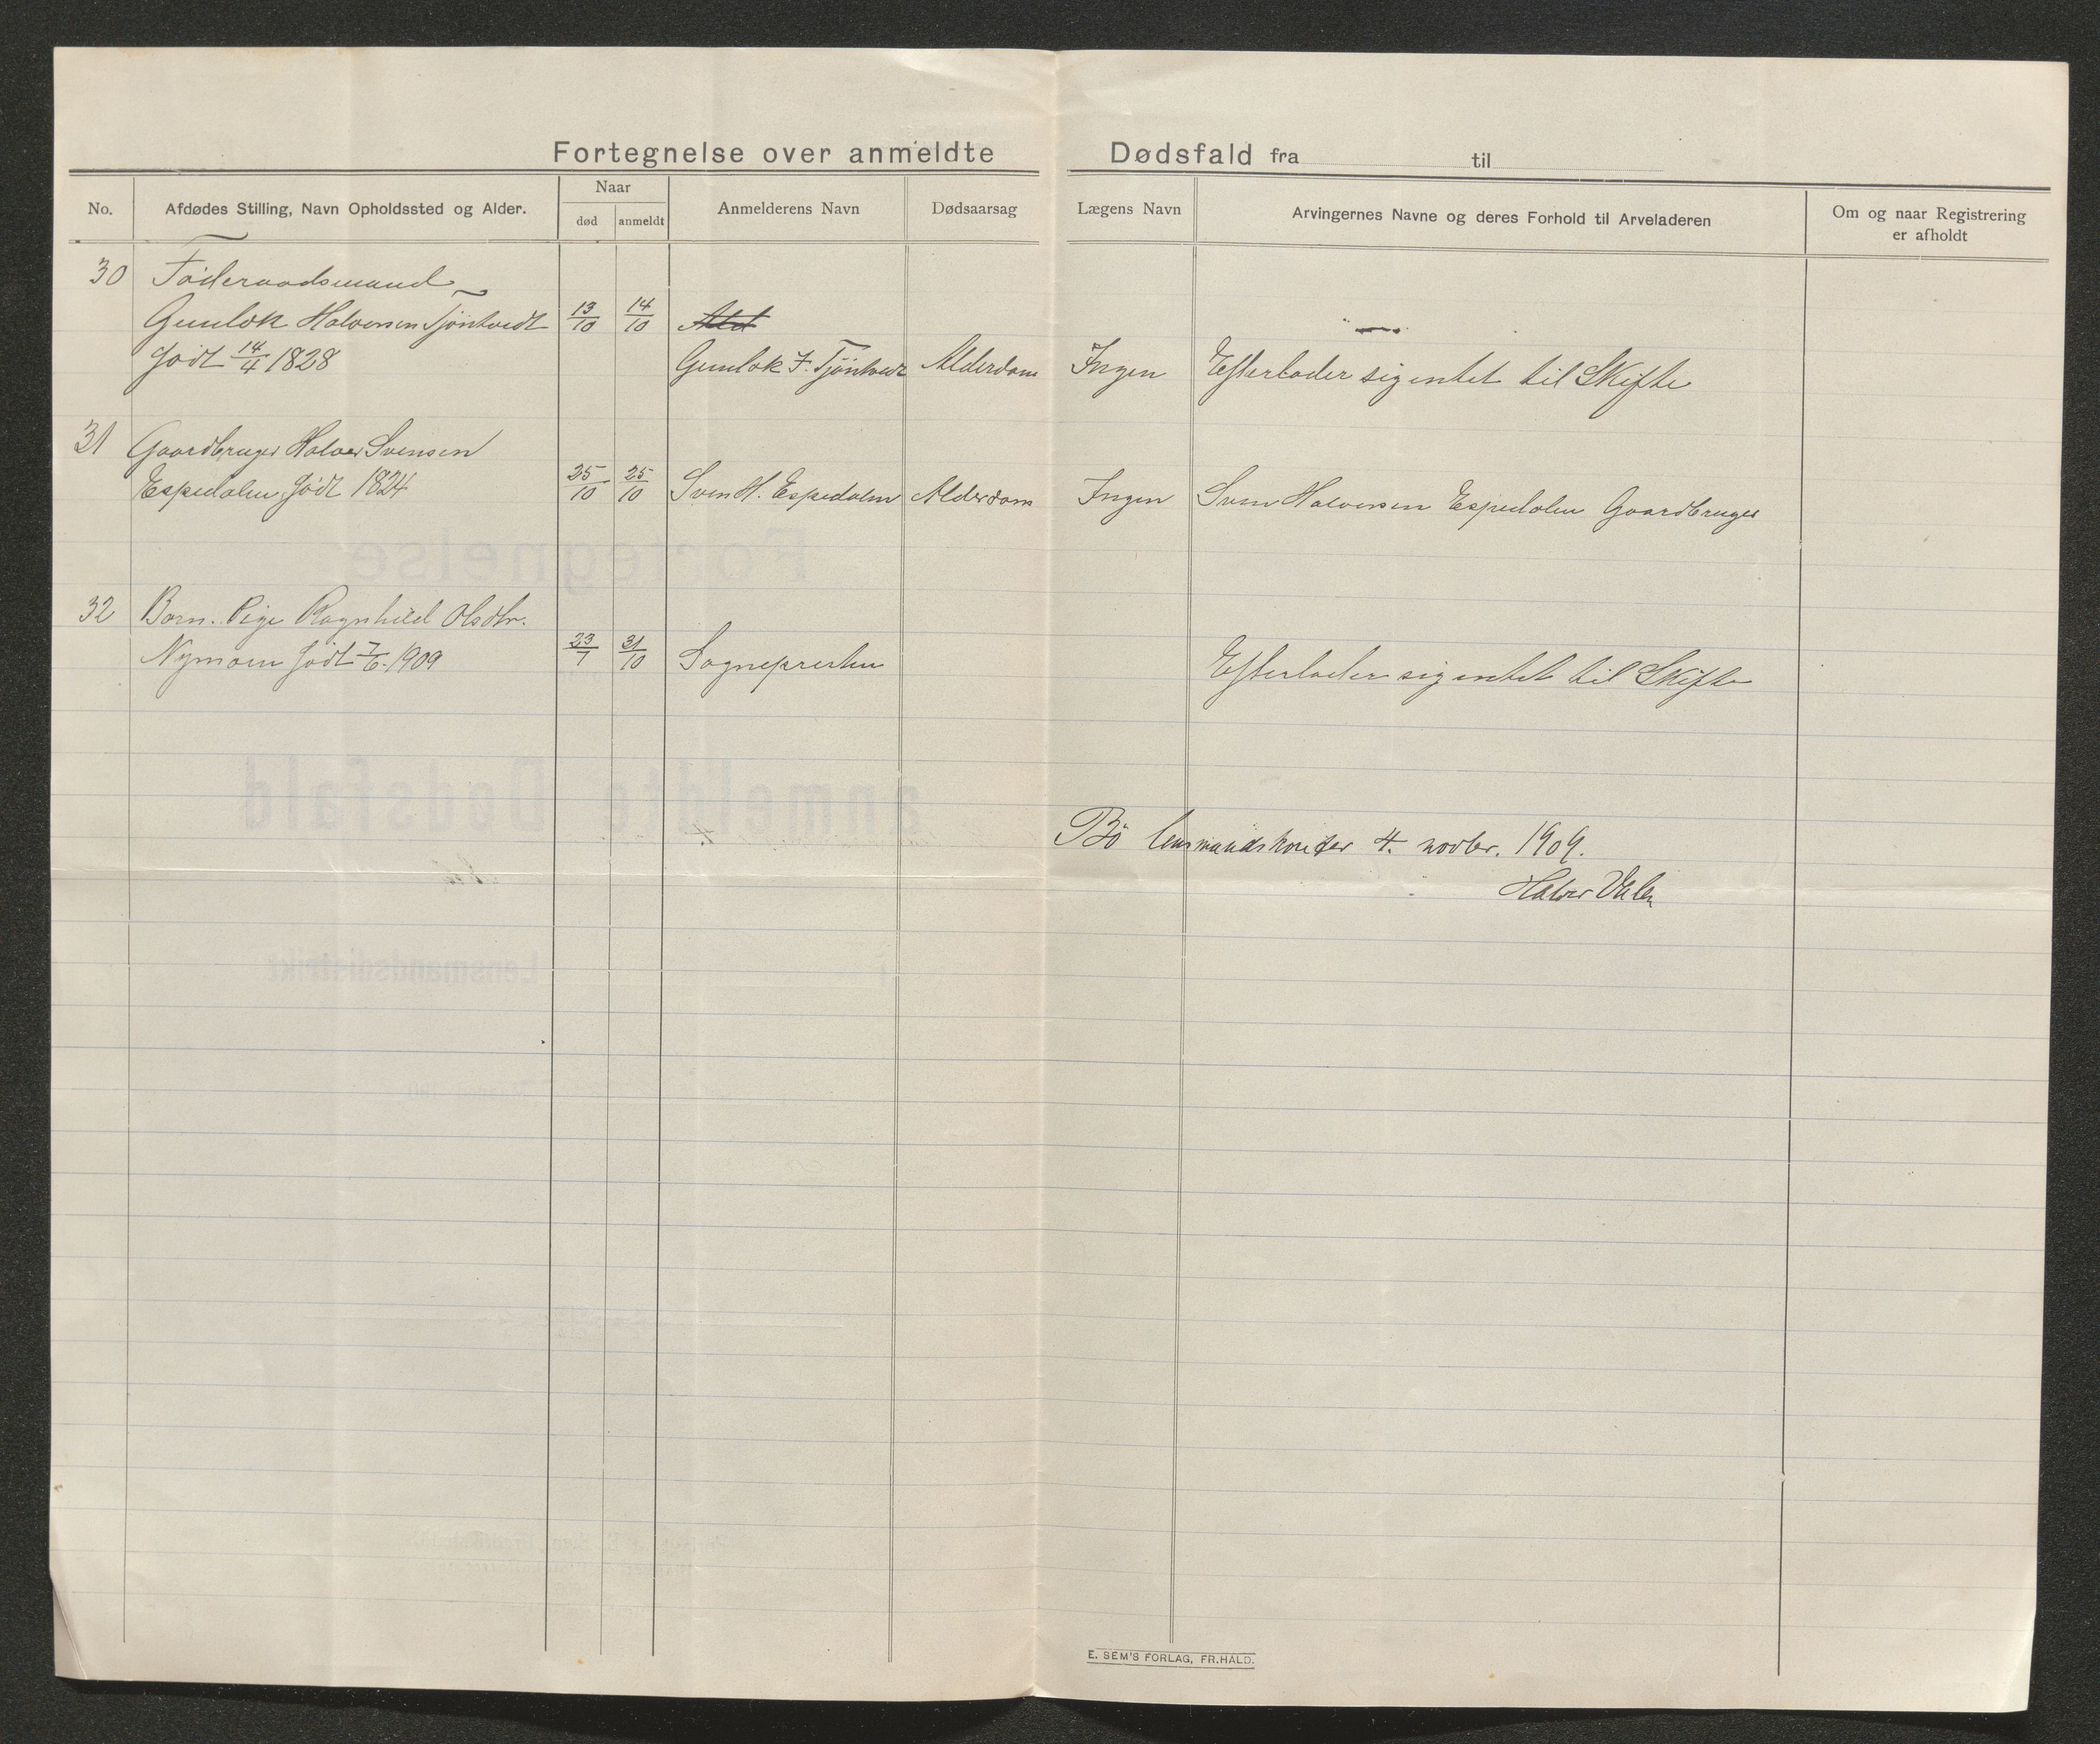 Fortegnelse over anmeldte Dødsfald fra til
No.
Afdødes Stilling, Navn Opholdssted og Alder.
Naar
død
anmeldt
Anmelderens Navn
Dødsaarsag
Lægens Navn
Arvingernes Navne og deres Forhold til Arveladeren
Om og naar Registrering
er afholdt
30 Föderaadsmand
Gunlek Halvorsen Tjöntvedt 13/10 14/10
födt 14/4 1828 Gunlek Tjöntvedt Alderdom Ingen Efterlader sig intet til Skifte
31 Gaardbruger Halvor Svensen
Espedalen födt 1824 25/10 25/10 Sven H. Espedalen Alderdom Ingen Sven Halvorsen Espedalen Gaardbruger
32 Barn. Pige Ragnhild Olsdtr.
Nymoen födt 7/6 1909 23/7 31/10 Sognepresten Efterlader sig intet til Skifte
Bö lensmandskontor 4. novbr. 1909.
Halvor
E. SEM'S FORLAG, FR.HALD.